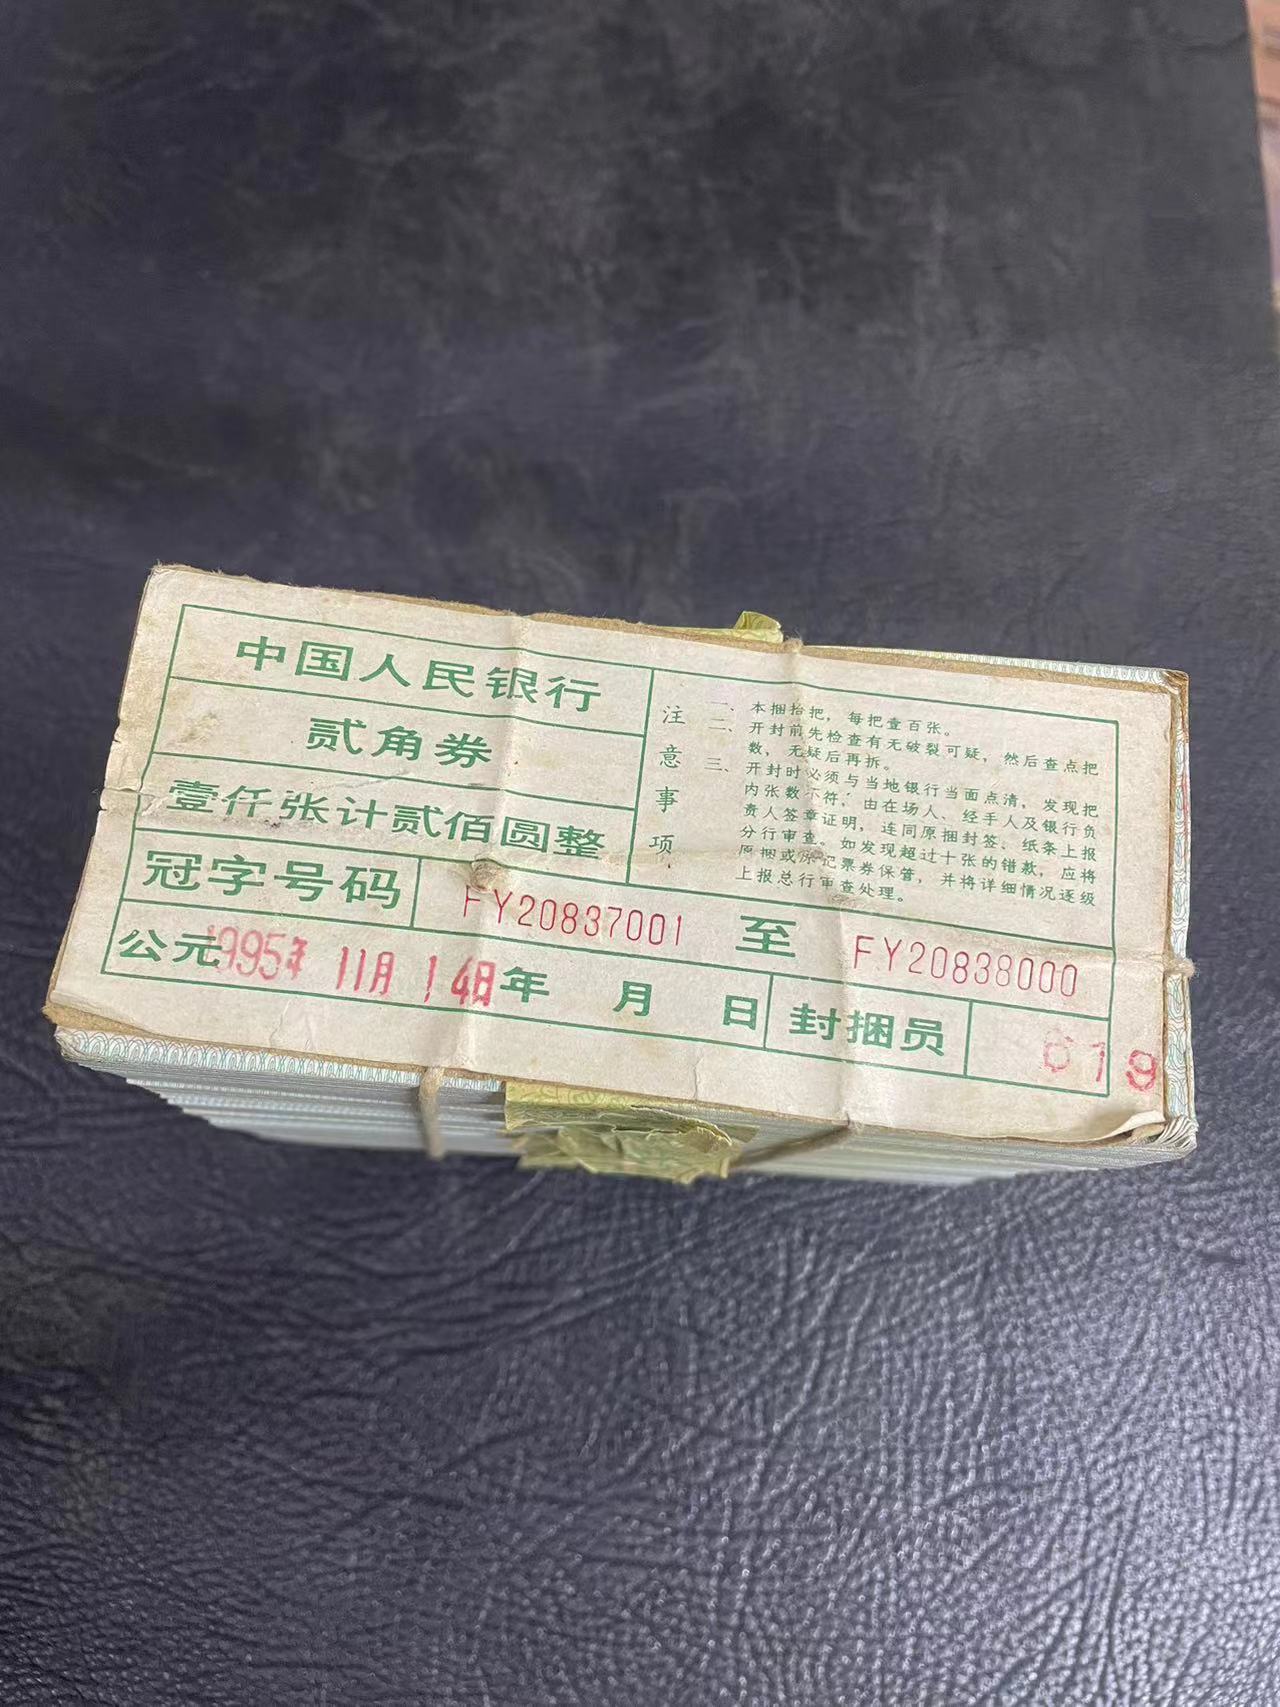 中国人民银行
贰角券
壹仟张计贰佰圆整
冠字号码 FY20837001 至 FY20838000
公元1995年 11月 14日年 月 日 封捆员 019
注意事项
一、本捆拾把，每把壹百张。
二、开封前先检查有无破裂可疑，然后查点把
数，无疑后再拆。
三、开封时必须与当地银行当面点清，发现把
内张数不符，由在场人、经手人及银行负
责人签章证明，连同原捆封签、纸条上报
分行审查。如发现超过十张的错款，应将
原捆或标记票券保管，并将详细情况逐级
上报总行审查处理。